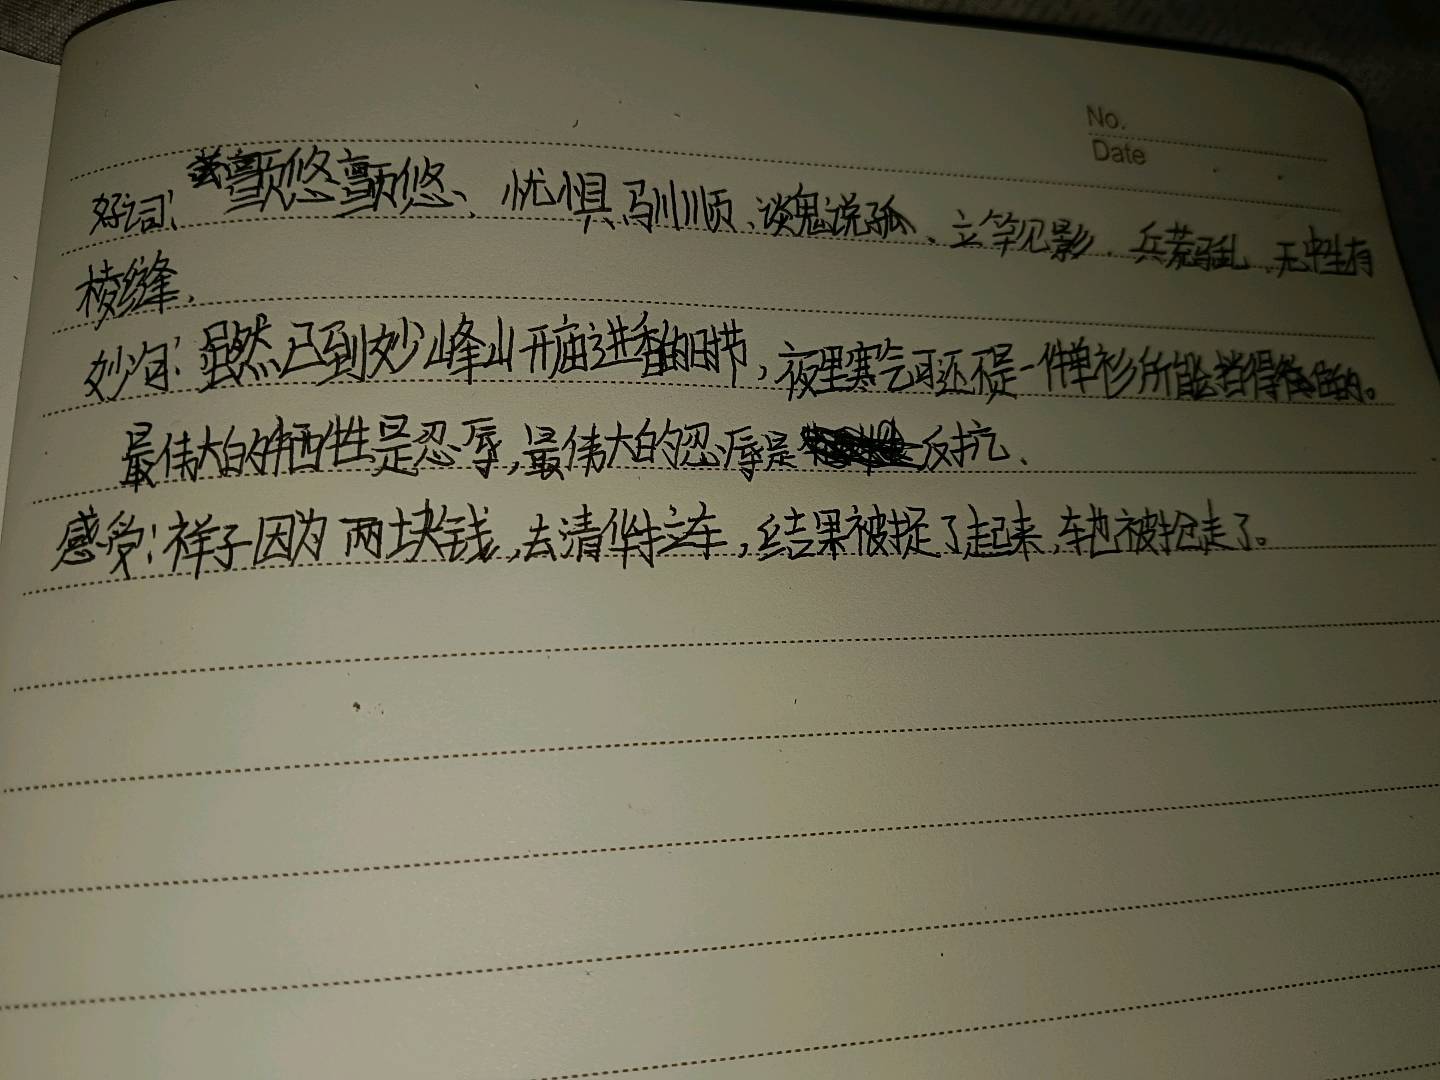 No.
Date
好词：颤悠颤悠、忧惧、驯顺、谈鬼说狐、立竿见影、兵荒马乱、无中生有
棱缝、
妙句：虽然已到妙峰山开庙进香的时节，夜里寒气可还不是一件单衫所能挡得住的。
最伟大的牺牲是忍辱，最伟大的忍辱是反抗、
感受：祥子因为两块钱，去清华拉车，结果被捉了起来，车也被抢走了。